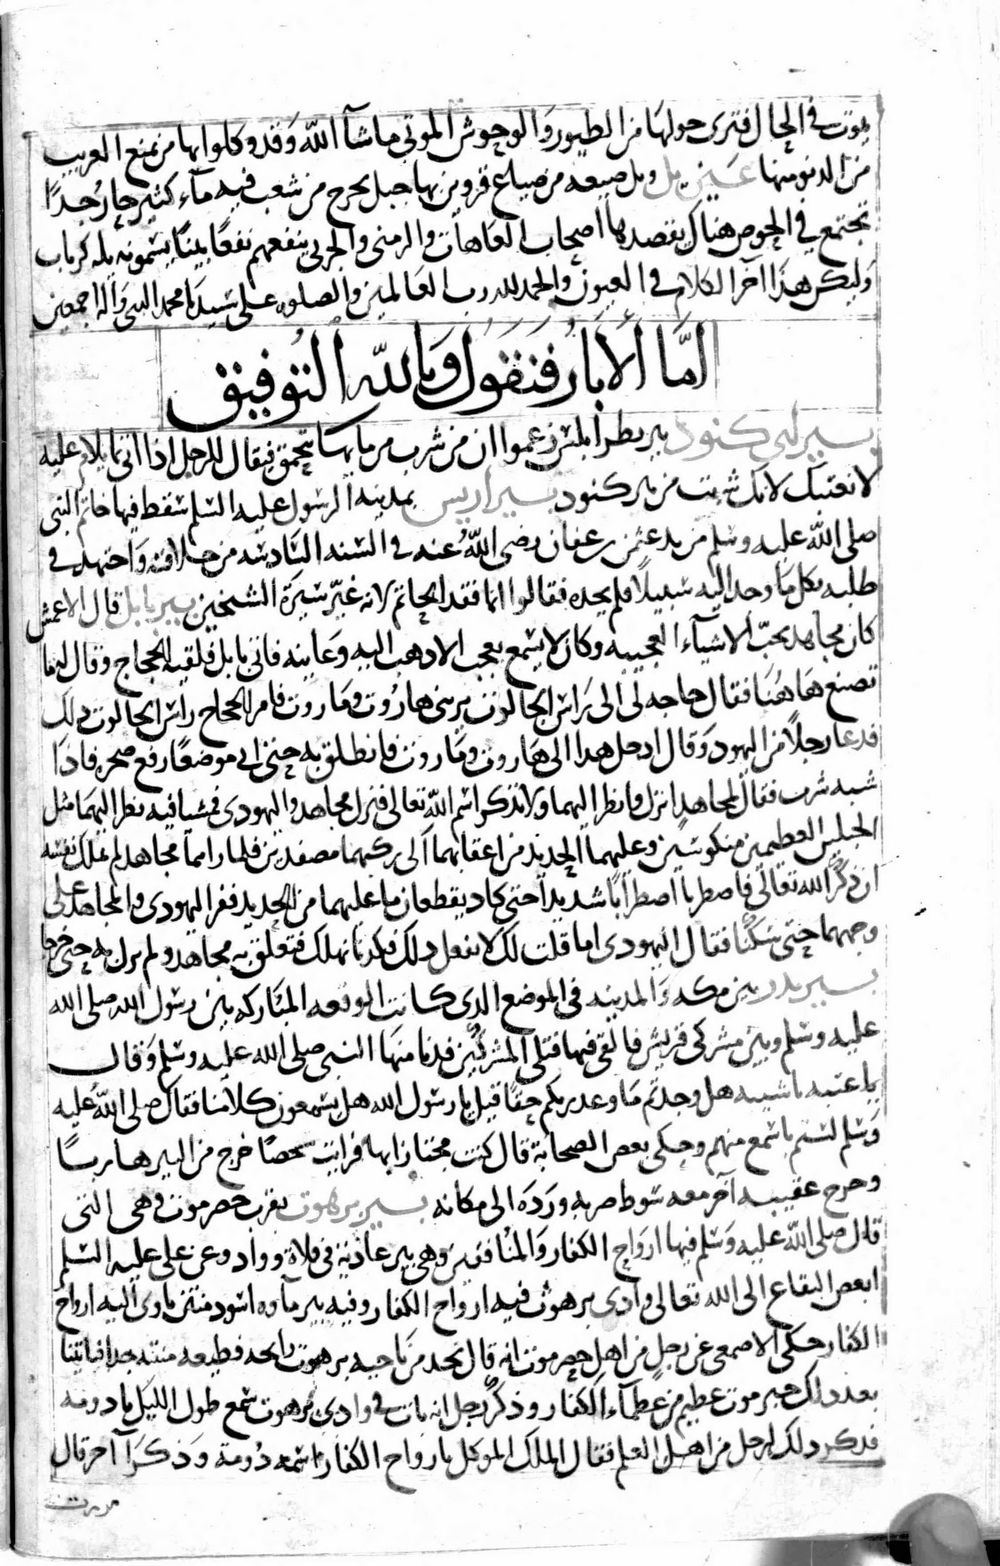 يموت في الحال فترى حولها من الطيور والوحوش الموتى ما شآ الله وقد وكلوا بها من يمنع الغريب
من الدنو منها عين يل ويل ضيعه من ضياع قزوين بها جبل يخرج من شعب فيه مآء كثير حار جدا
تجتمع في الحوض هناك يقصدها اصحاب العاهات والزمنى والجربى ينفعهم نفعا بينا يسمونه يله كرماب
وليكن هذا اخر الكلام في العيون والحمد لله رب العالمين والصلوه على سيدنا محمد النبي واله اجمعين
اما الابار فنقول وبالله التوفيق
بير ابي كنود بير بطرابلس زعموا ان من شرب من مايها يتحمق فيقال للرجل اذا اتى بما يلام عليه
لا نعتبك لانك شربت من بير كنود بير اريس بمدينه الرسول عليه السلم سقط فيها خاتم النبي
صلى الله عليه وسلم من يد عثمن بن عفان رضي الله عنه في السنه السادسه من خلافته واجتهد في
طلبه بكل ما وجد اليه سبيلا فلم يجده فقالوا انما فقد الخاتم لانه غير سيرة الشيخين بير بابل قال الاعمش
كان مجاهد يحب الاشيآء العجيبه وكان لا يسمع بعجب الا ذهب اليه وعاينه فاتى بابل فلقيه الحجاج وقال له ما
تصنع هاهنا فقال حاجه لى الى راس الجالوت يريني هاروت وماروت فامر الحجاج راس الجالوت بذلك
فدعا رجلا من اليهود وقال ادخل هذا الى هاروت وماروت فانطلق به حتى اتى موضعا رفع صخره فاذا
شبه سرب فقال لمجاهد انزل وانظر اليهما ولا تذكر اسم الله تعالى فنزل مجاهد واليهودي فمشيا فيه نظر اليهما مثل
الجبلين العظيمين منكوسين وعليهما الحديد من اعقابهما الى ركبهما مصفدين فلما راهما مجاهد لم يملك نفسه
ان ذكر الله تعالى فاضطربا اضطرابا شديدا حتى كاد يقطعان ما عليهما من الحديد ففر اليهودي والمجاهد على
وجههما حتى سكنا فقال اليهودي اما قلت لك لا تفعل ذلك فكدنا نهلك فتعلق به مجاهد ولم يزل به حتى خرجا
بير بدر بين مكه والمدينه في الموضع الذي كانت الوقعه المباركه بين رسول الله صلى الله
عليه وسلم وبين مشركي قريش فالقى فيها قتلى المشركين فدنا منها النبي صلى الله عليه وسلم وقال
يا عتبه يا شيبه هل وجدتم ما وعد ربكم حقا قيل يا رسول الله هل يسمعون كلامنا فقال صلى الله عليه
وسلم لستم باسمع منهم وحكى بعض الصحابة قال كنت مجتازا بها فرايت شخصا خرج من البير هاربا
وخرج عقيبه آخر معه سوط ضربه ورده الى مكانه بير برهوت بقرب حضرموت وهي التي
قال صلى الله عليه وسلم فيها ارواح الكفار والمنافقين وهي بير عادية في فلاة وواد وعن علي عليه السلم
ابغض البقاع الى الله تعالى وادي برهوت فيه ارواح الكفار وفيه بير ماوه اسود منتن ياوى اليه ارواح
الكفار حكى الاصمعي عن رجل من اهل حضرموت انه قال نجد من ناحيه برهوت رايحه فظيعه منتنه جدا فياتينا
بعد ذلك خبر موت عظيم من عظمآء الكفار وذكر رجل انه بات في وادي برهوت سمع طول الليل يا دومه
فذكر ذلك لرجل من اهل العلم فقال الملك الموكل بارواح الكفار اسمه دومة وذكر آخر قال
مررت